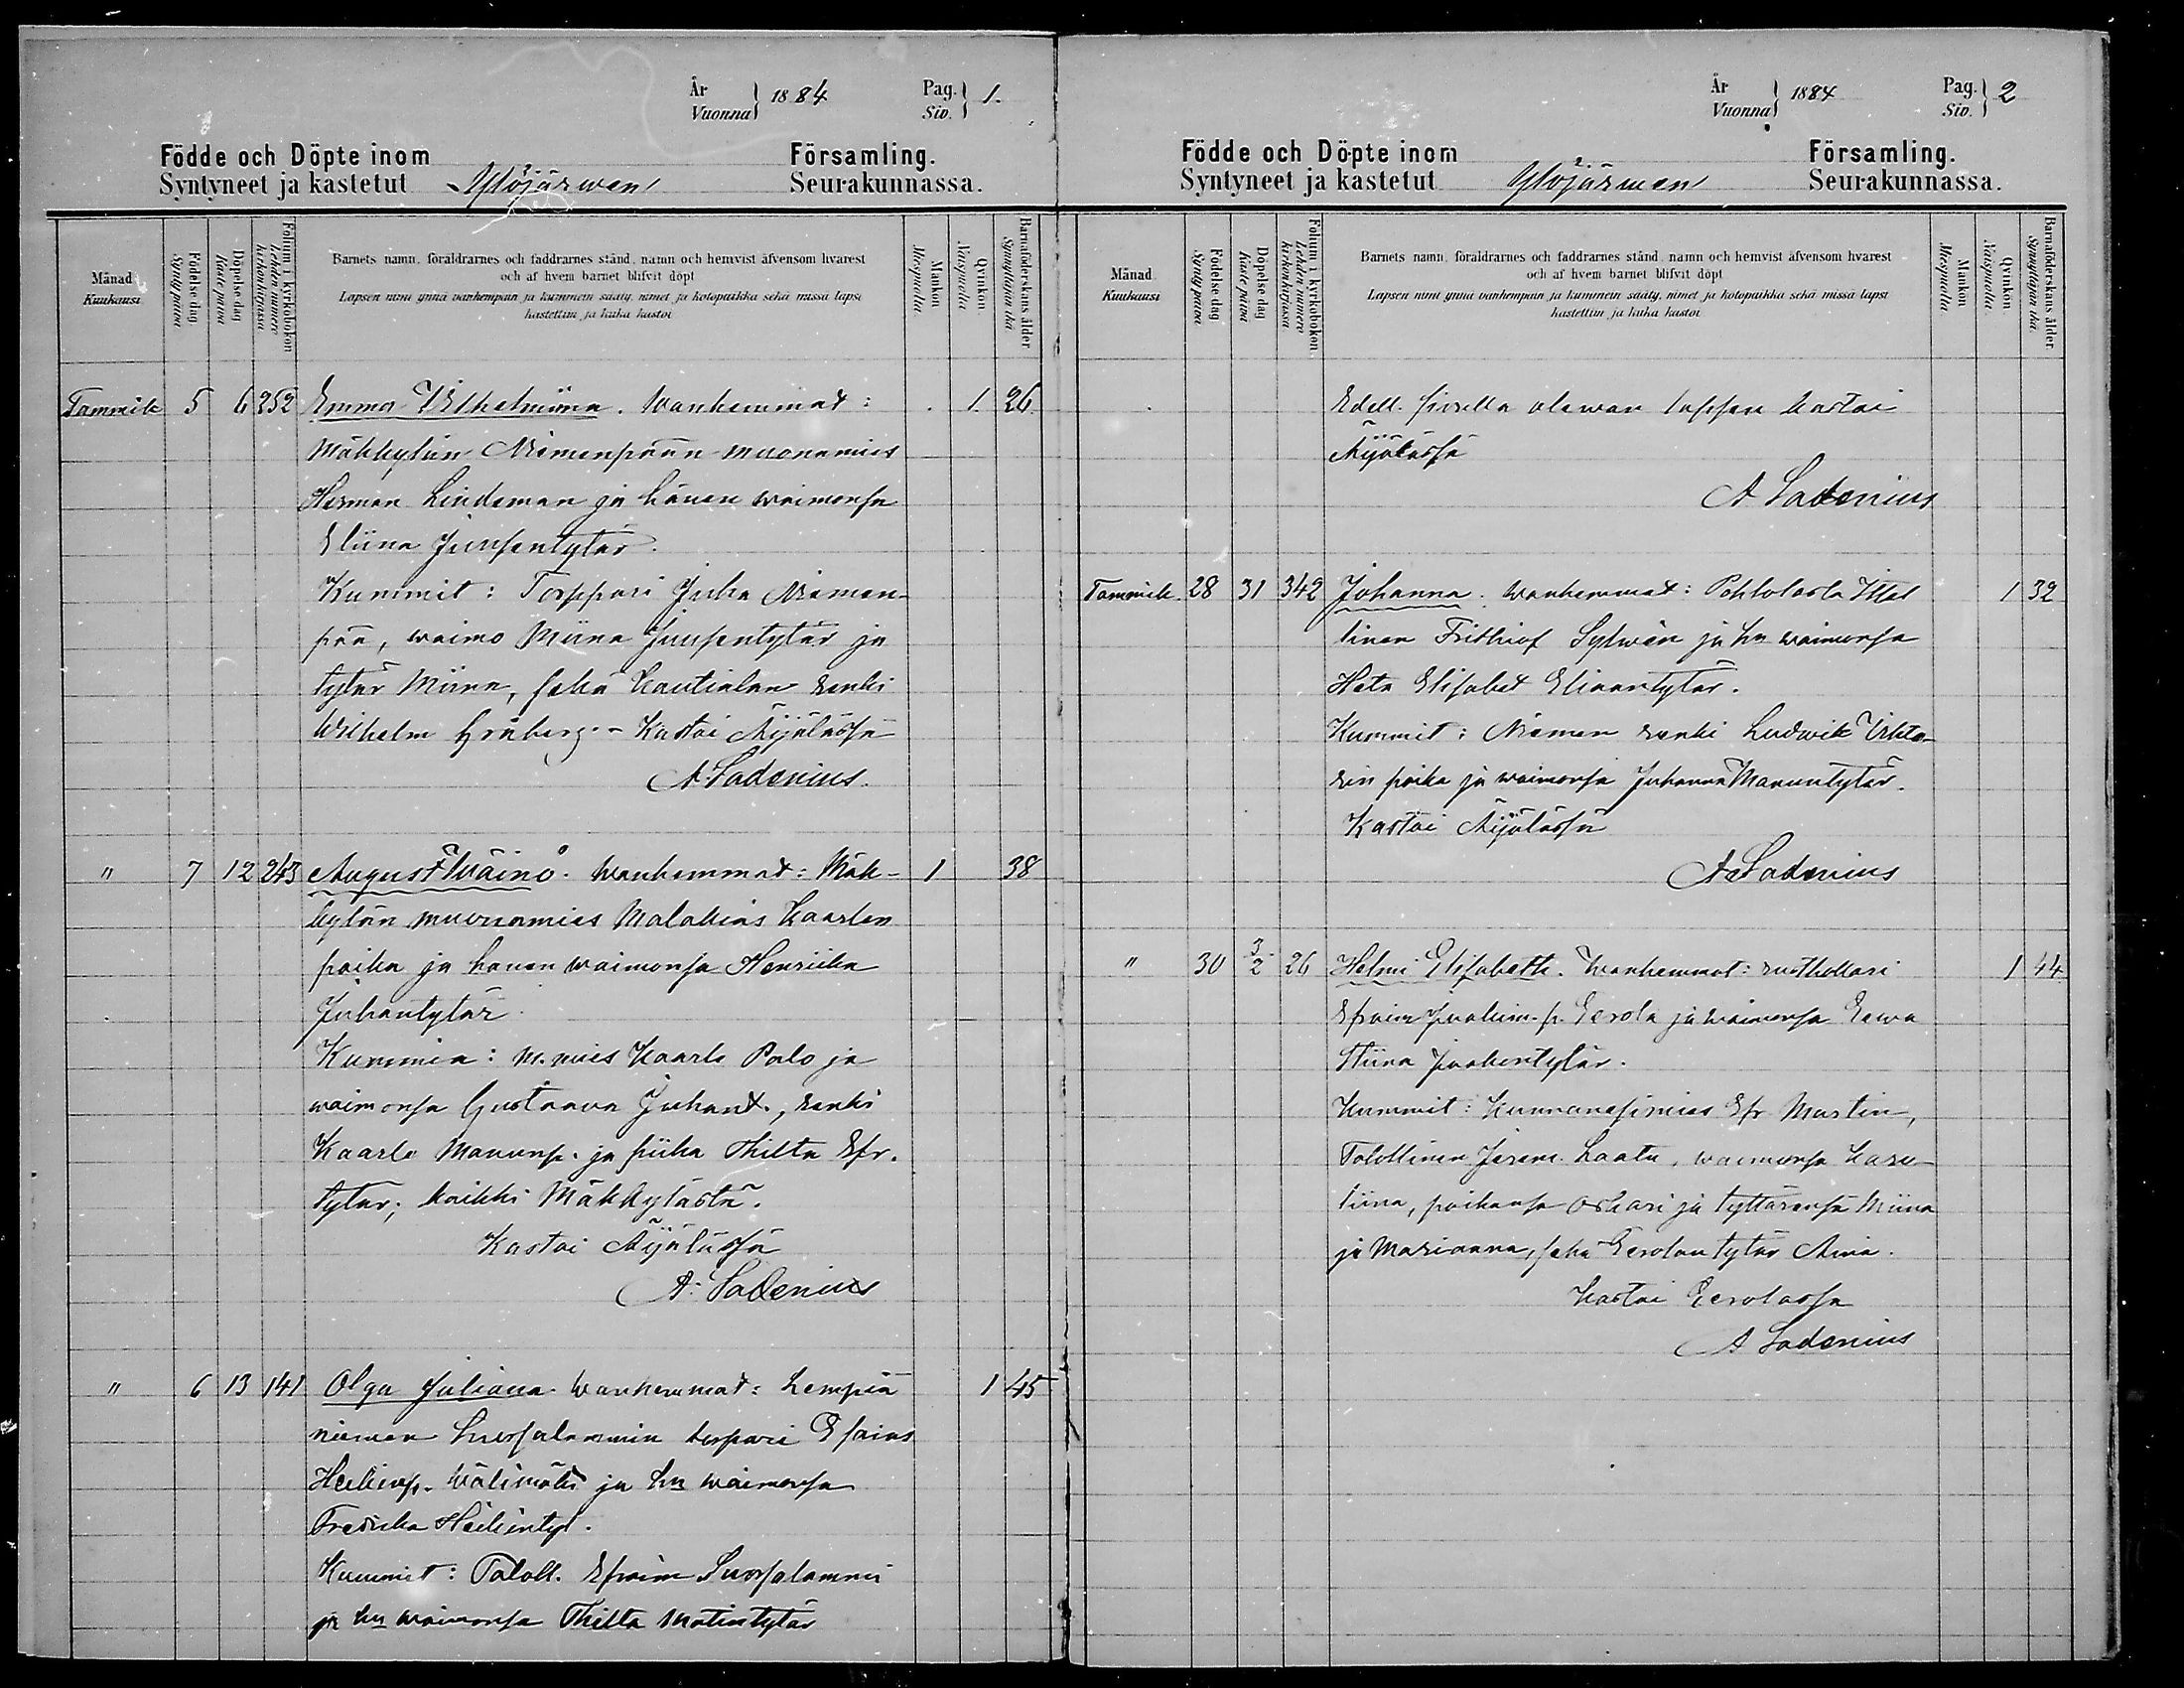 År
Vuonna } 1884 Pag.
Siv. } 1.
Födde och Döpte inom Församling.
Syntyneet ja kastetut Ylöjärwen Seurakunnassa.
Månad
Kuukausi
Födelse dag
Synty päivä
Döpelse dag
Kaste päivä
Folium i kyrkoboken
Lehden numero kirkonkirjassa
Barnets namn, föräldrarnes och faddrarnes stånd, namn och hemvist äfvensom hvarest
och af hvem barnet blifvit döpt
Lapsen nimi ynnä vanhempain ja kummein sääty, nimet ja kotopaikka sekä missä lapsi
kastettiin ja kuka kastoi
Mankön
Miespuolia
Qvinkön
Vaispuolia
Barnaföderskans ålder
Synnyttäjän ikä
Tammik 5 6 252 Emma Wilhelmiina. Wanhemmat: 1. 26.
Mäkkylän Niemenpään muonamies
Herman Lindeman ja hänen waimonsa
Eliina Juusentytär.
Kummit: Torppari Juha Niemen-
pää, waimo Miina Juusentytär ja
tytär Miina, sekä Kautialan renki
Wilhelm Gråberg. - Kastoi Äijälässä
A. Ladenius.
" 7 12 243 August Wäinö. Wanhemmat: Mäk- 1 38
kylän muonamies Malakias Kaarlen
poika ja hänen waimonsa Henriika
Juhantytär.
Kummia: M. mies Kaarle Palo ja
waimonsa Gustaava Juhant., renki
Kaarle Manunp. ja piika Thilta Efr.
tytär; kaikki Mäkkylästä.
Kastoi Äijälässä
A. Ladenius
" 6 13 141 Olga Juliana. Wanhemmat: Lempiä 1 45
niemen Suosalammin torpari Esaias
Heikinp. Wälimäki ja hn waimonsa
Fredrika Heikintyt.
Kummit: Taloll. Efraim Suosalammi
ja hn waimonsa Thilta Matintytär
År
Vuonna } 1884 Pag.
Siv. } 2
Födde och Döpte inom Församling.
Syntyneet ja kastetut Ylöjärwen Seurakunnassa.
Månad
Kuukausi
Födelse dag
Synty päivä
Döpelse dag
Kaste päivä
Folium i kyrkoboken
Lehden numero kirkonkirjassa
Barnets namn, föräldrarnes och faddrarnes stånd, namn och hemvist äfvensom hvarest
och af hvem barnet blifvit döpt
Lapsen nimi ynnä vanhempain ja kummein sääty, nimet ja kotopaikka sekä missä lapsi
kastettiin ja kuka kastoi
Mankön
Miespuolia
Qvinkön
Vaispuolia
Barnaföderskans ålder
Synnyttäjän ikä
Edell. siwulla olewan lapsen kastoi
Äijälässä
A Ladenius
Tammik. 28 31 342 Johanna. Wanhemmat: Pohtolasta Ittel 1 32
linen Frithiof Sylwén ja hn waimonsa
Heta Elisabet Eliaantytär.
Kummit: Niemen renki Ludwik Wikto-
rin poika ja waimonsa Juhanna Manuntytär.
Kastoi Äijälässä
A Ladenius
" 30 3/2 26 Helmi Elisabeth. Wanhemmat: rusthollari 1 44
Efraim Joakim. p. Eerola ja waimonsa Eewa
Stiina Jaakontytär.
Kummit: Kunnanesimies Efr. Martin,
Talollinen Jerem. Laatu, waimonsa Karo-
liina, poikansa Oskari ja tyttärensä Miina
ja Marianna, sekä Eerolan tytär Aina.
Kastoi Eerolassa
A Ladenius